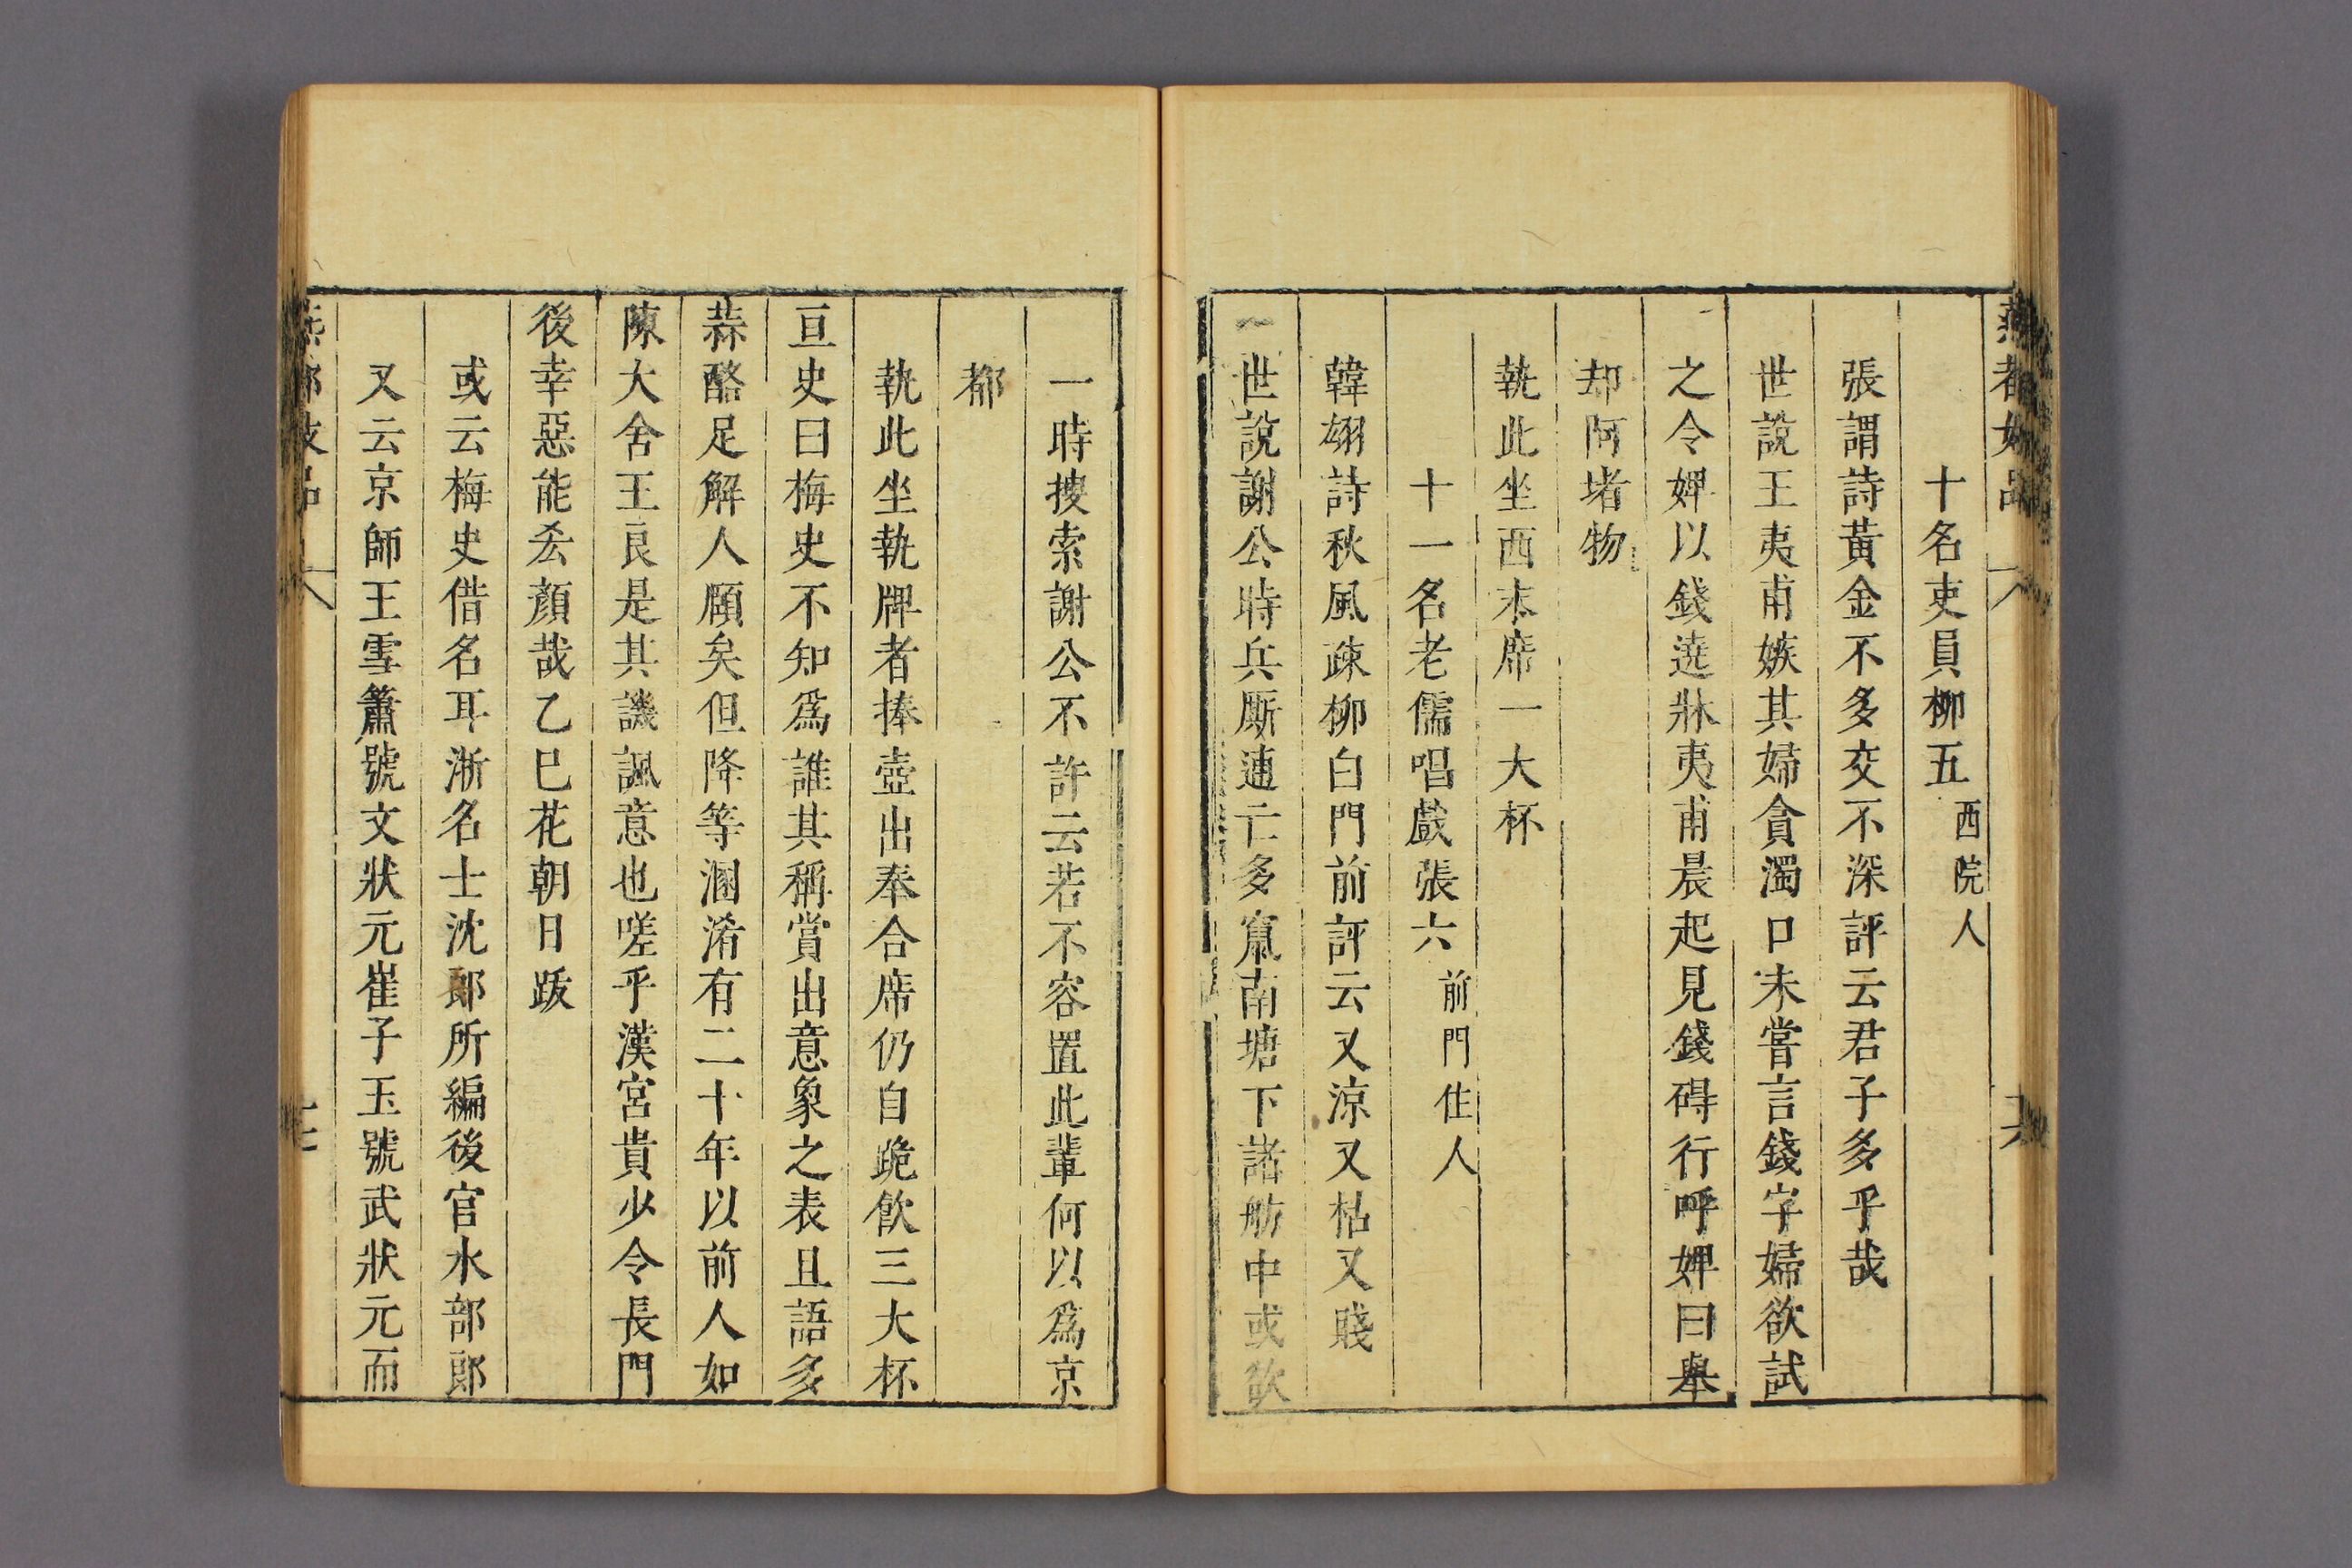 燕都妓品
十名吏員柳五西院人
張謂詩黃金不多交不深評云君子多乎哉
世說王夷甫嫉其婦貪濁口未嘗言錢字婦欲試
之令婢以錢遶牀夷甫晨起見錢碍行呼婢曰舉
却阿堵物
執此坐西末席一大杯
十一名老儒唱戲張六前門住人
韓翃詩秋風疎柳白門前評云又涼又枯又賤
世說謝公時兵厮逋亡多竄南塘下諸舫中或欲
一時搜索謝公不許云若不容置此輩何以爲京
都
執此坐執牌者捧壺出奉合席仍自跪飲三大杯
亘史曰梅史不知爲誰其稱賞出意象之表且語多
蒜酪足解人頤矣但降等溷淆有二十年以前人如
陳大舍王良是其譏諷意也嗟乎漢宮貴少令長門
後幸惡能厺顏哉乙巳花朝日跋
或云梅史借名耳浙名士沈郎所編後官水部郎
又云京師王雪簫號文狀元崔子玉號武狀元而
燕都妓品